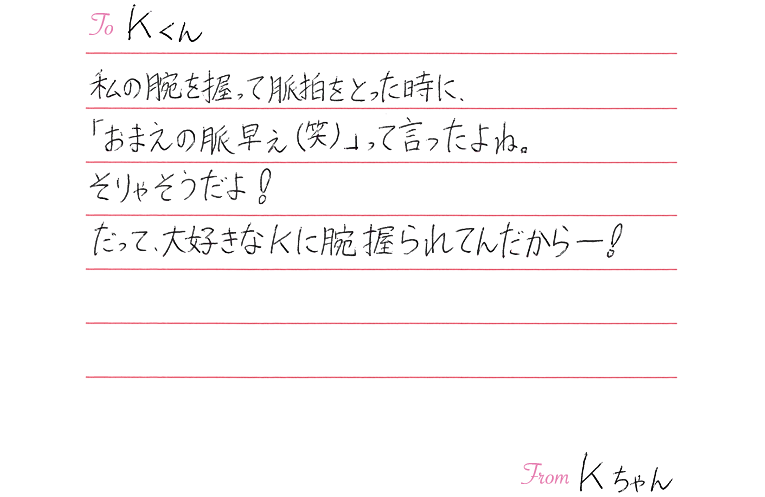 To Kくん
私の腕を握って脈拍をとった時に、
「おまえの脈早え(笑)」って言ったよね。
そりゃそうだよ!
だって、大好きなKに腕握られてんだからー!
From Kちゃん